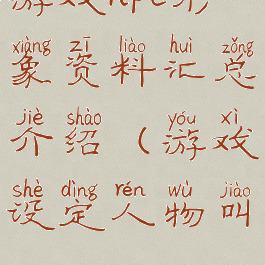 xiàng zī liào huì zǒng
象资料汇总
jiè shào yóu xì
介绍（游戏
shè dìng rén wù jiào
设定人物叫